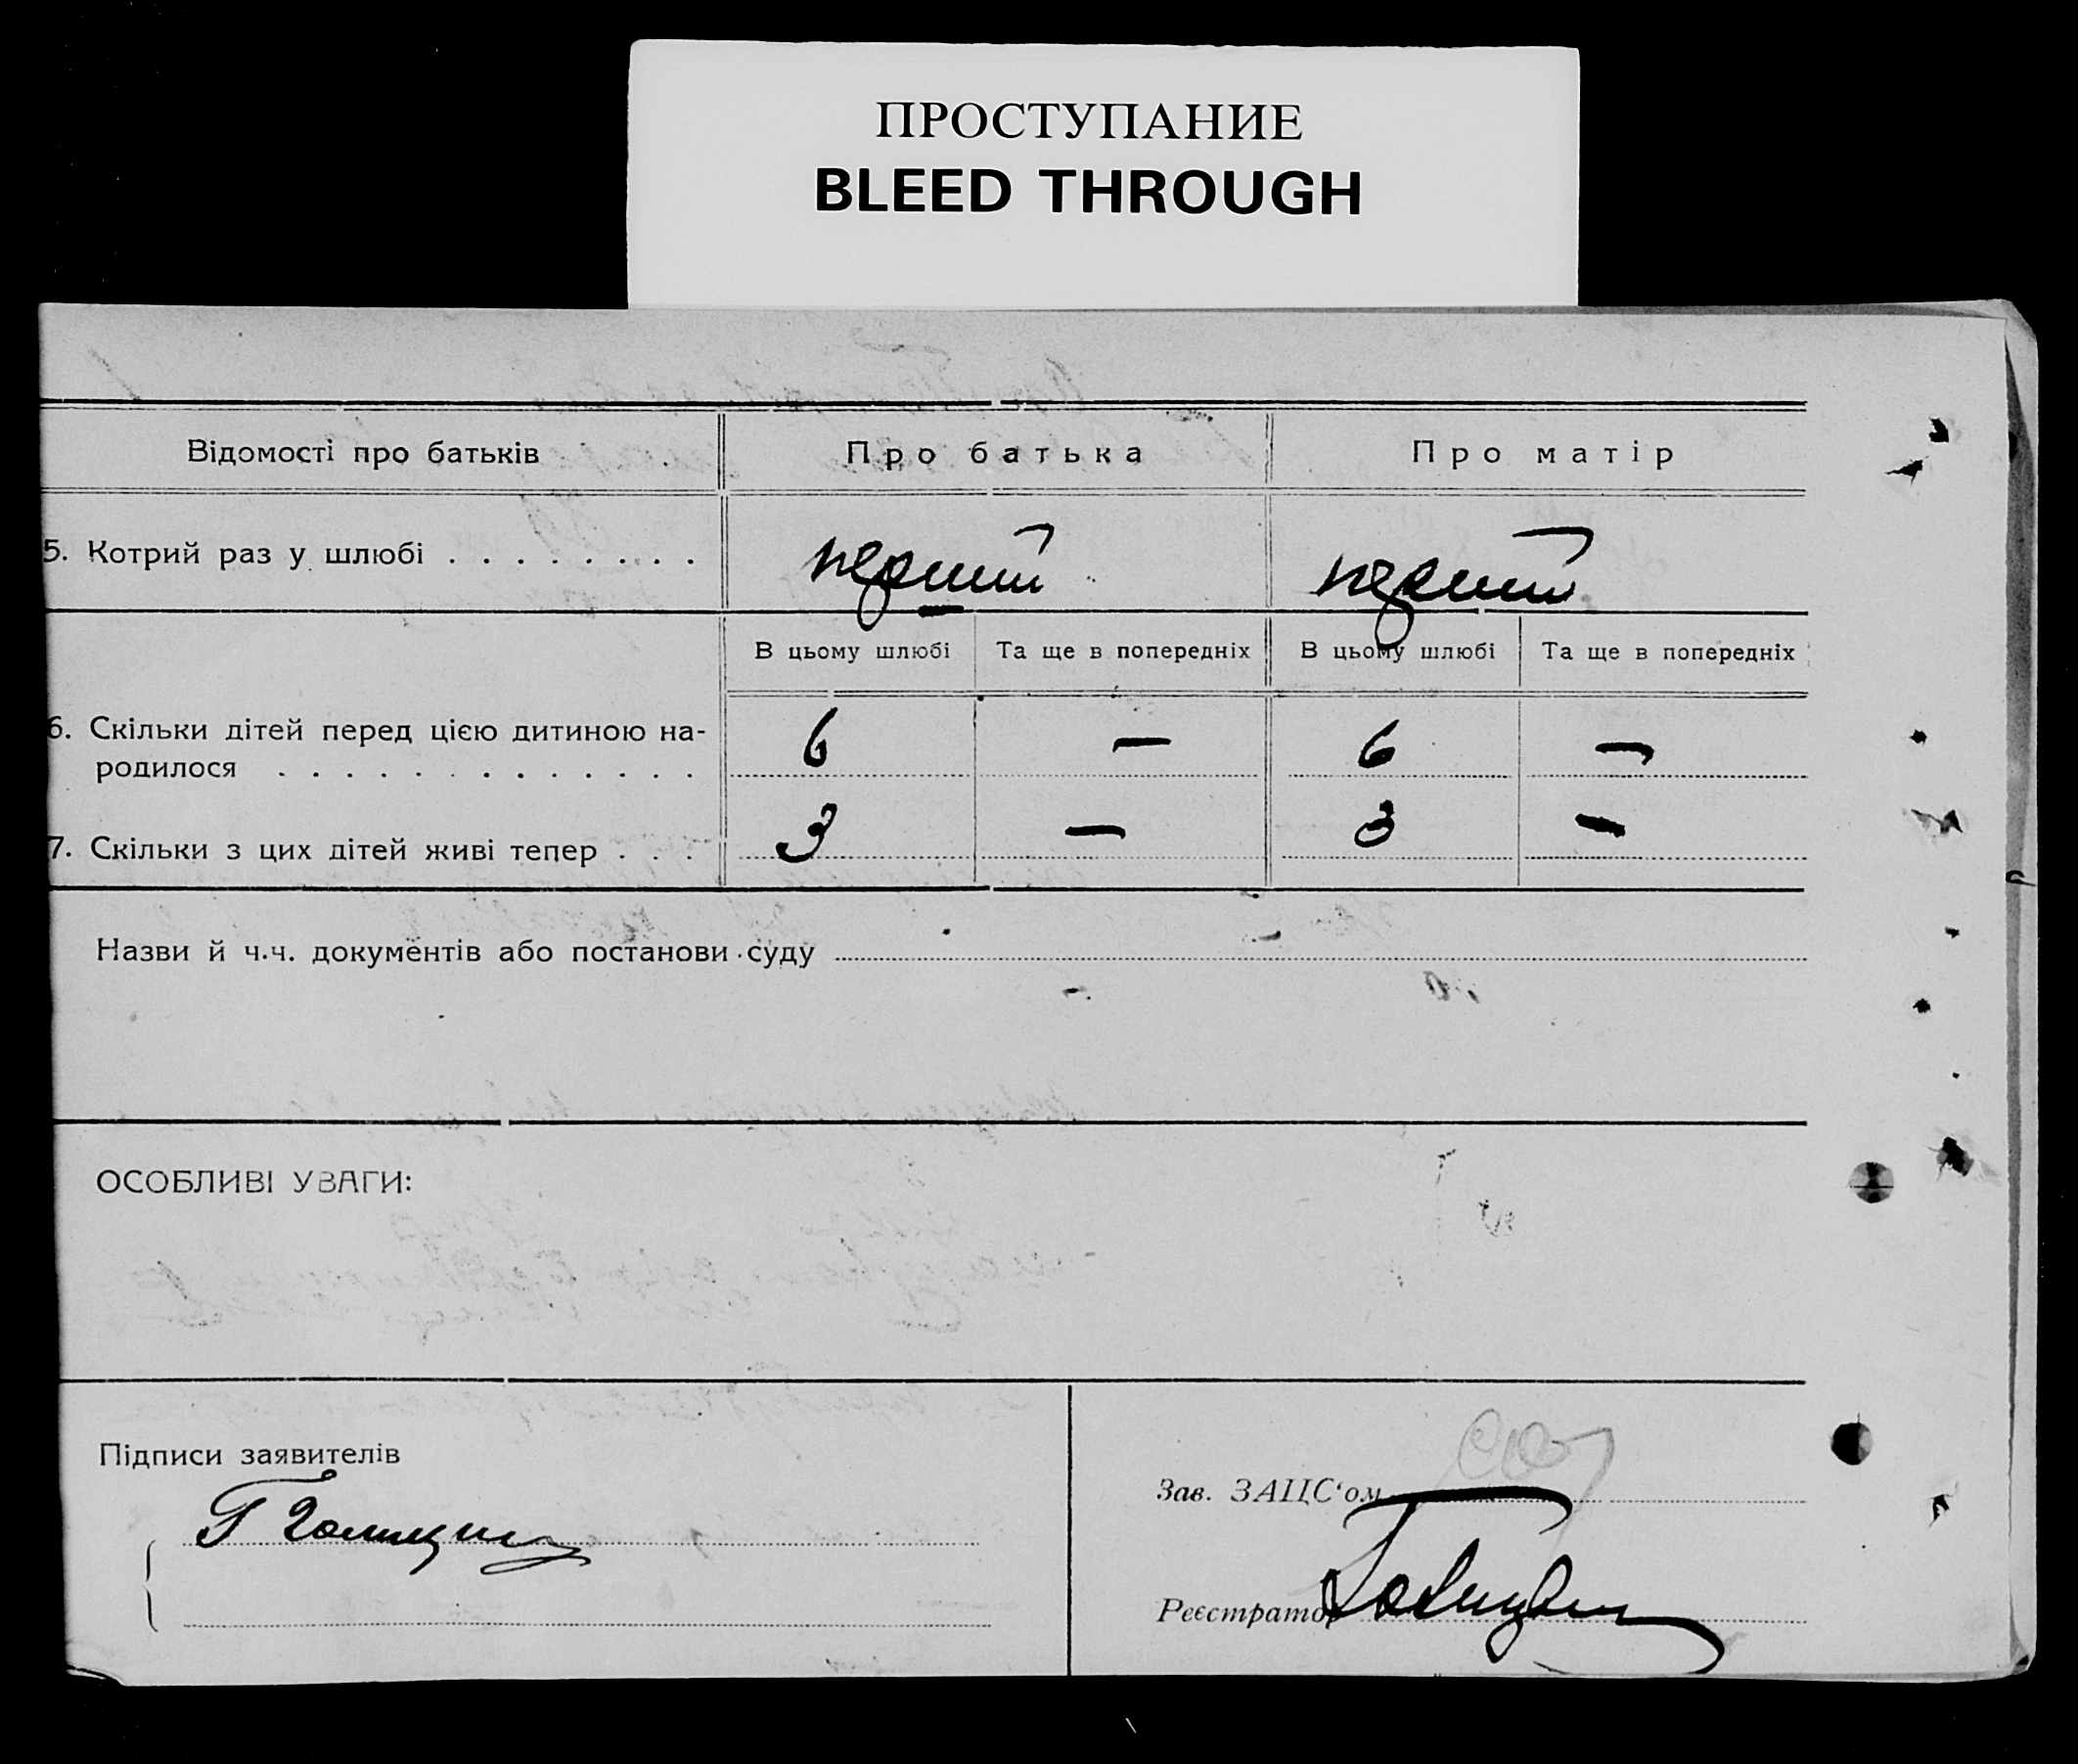 ПРОСТУПАНИЕ
BLEED THROUGH
Відомості про батьків Про батька Про матір
5. Котрий раз у шлюбі . . . . . . . . перший перший
В цьому шлюбі Та ще в попередніх В цьому шлюбі Та ще в попередніх
6. Скільки дітей перед цією дитиною на-
родилося . . . . . . . . . . . . . 6 — 6 —
7. Скільки з цих дітей живі тепер . . . 3 — 3 —
Назви й ч.ч. документів або постанови суду
ОСОБЛИВІ УВАГИ:
Підписи заявителів
Зав. ЗАЦС‘ом
Г
Реєстратор